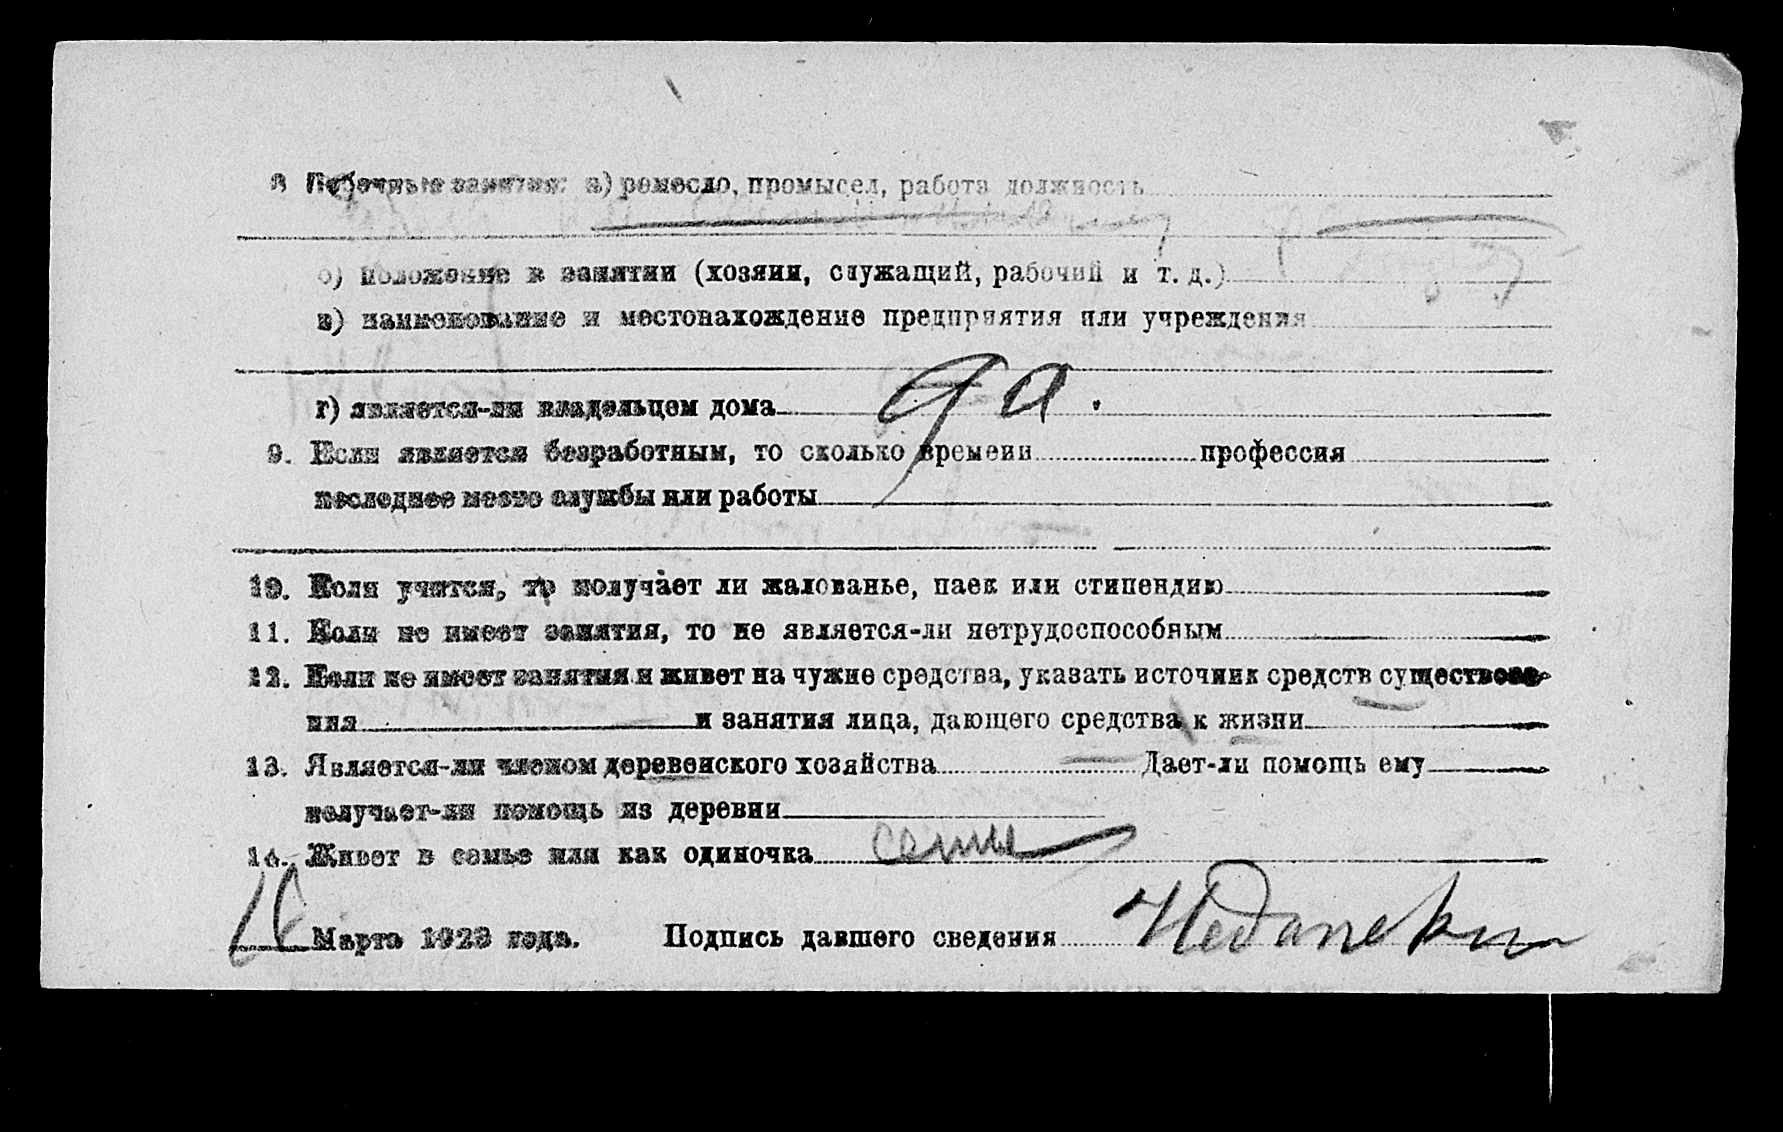 8 Побочные занятия: а) ремесло, промысел, работа должность
б) положение в занятии (хозяин, служащий, рабочий и т. д.)
в) наименование и местонахождение предприятия или учреждения
г) является-ли владельцем дома да.
9. Если является безработным, то сколько времени профессия
последнее место службы или работы
10. Если учится, то получает ли жалованье, паек или стипендию
11. Если не имеет занятия, то не является-ли нетрудоспособным
12. Если не имеет занятия и живет на чужие средства, указать источник средств существова-
ния и занятия лица, дающего средства к жизни
13. Является-ли членом деревенского хозяйства Дает-ли помощь ему
получает-ли помощь из деревни
14. Живет в семье или как одиночка семье
Марта 1923 года. Подпись давшего сведения